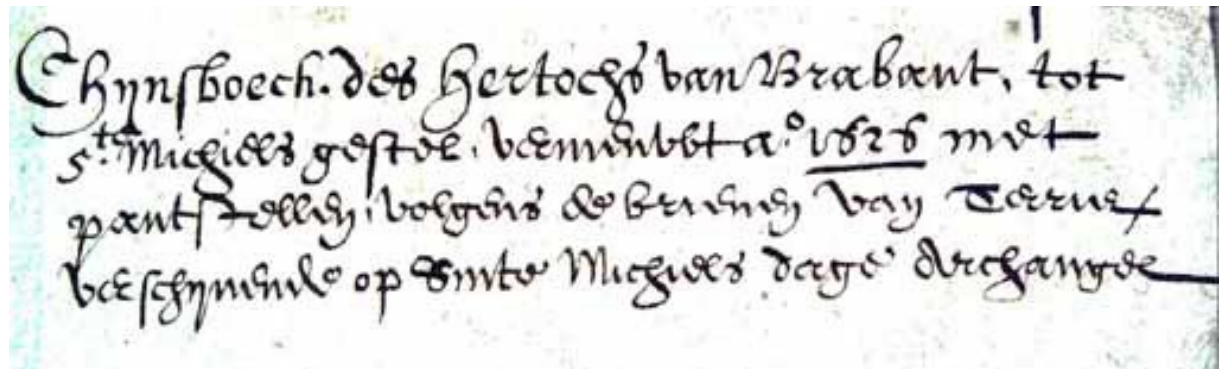 Chijnsboeck. des Hertochs van Brabant, tot
S.te Michiels gestel, vernieuwt a.o 1626 met
pantstellen, volgens de brieven van Terrier
verschijnende op Sinte Michiels dage Archangel